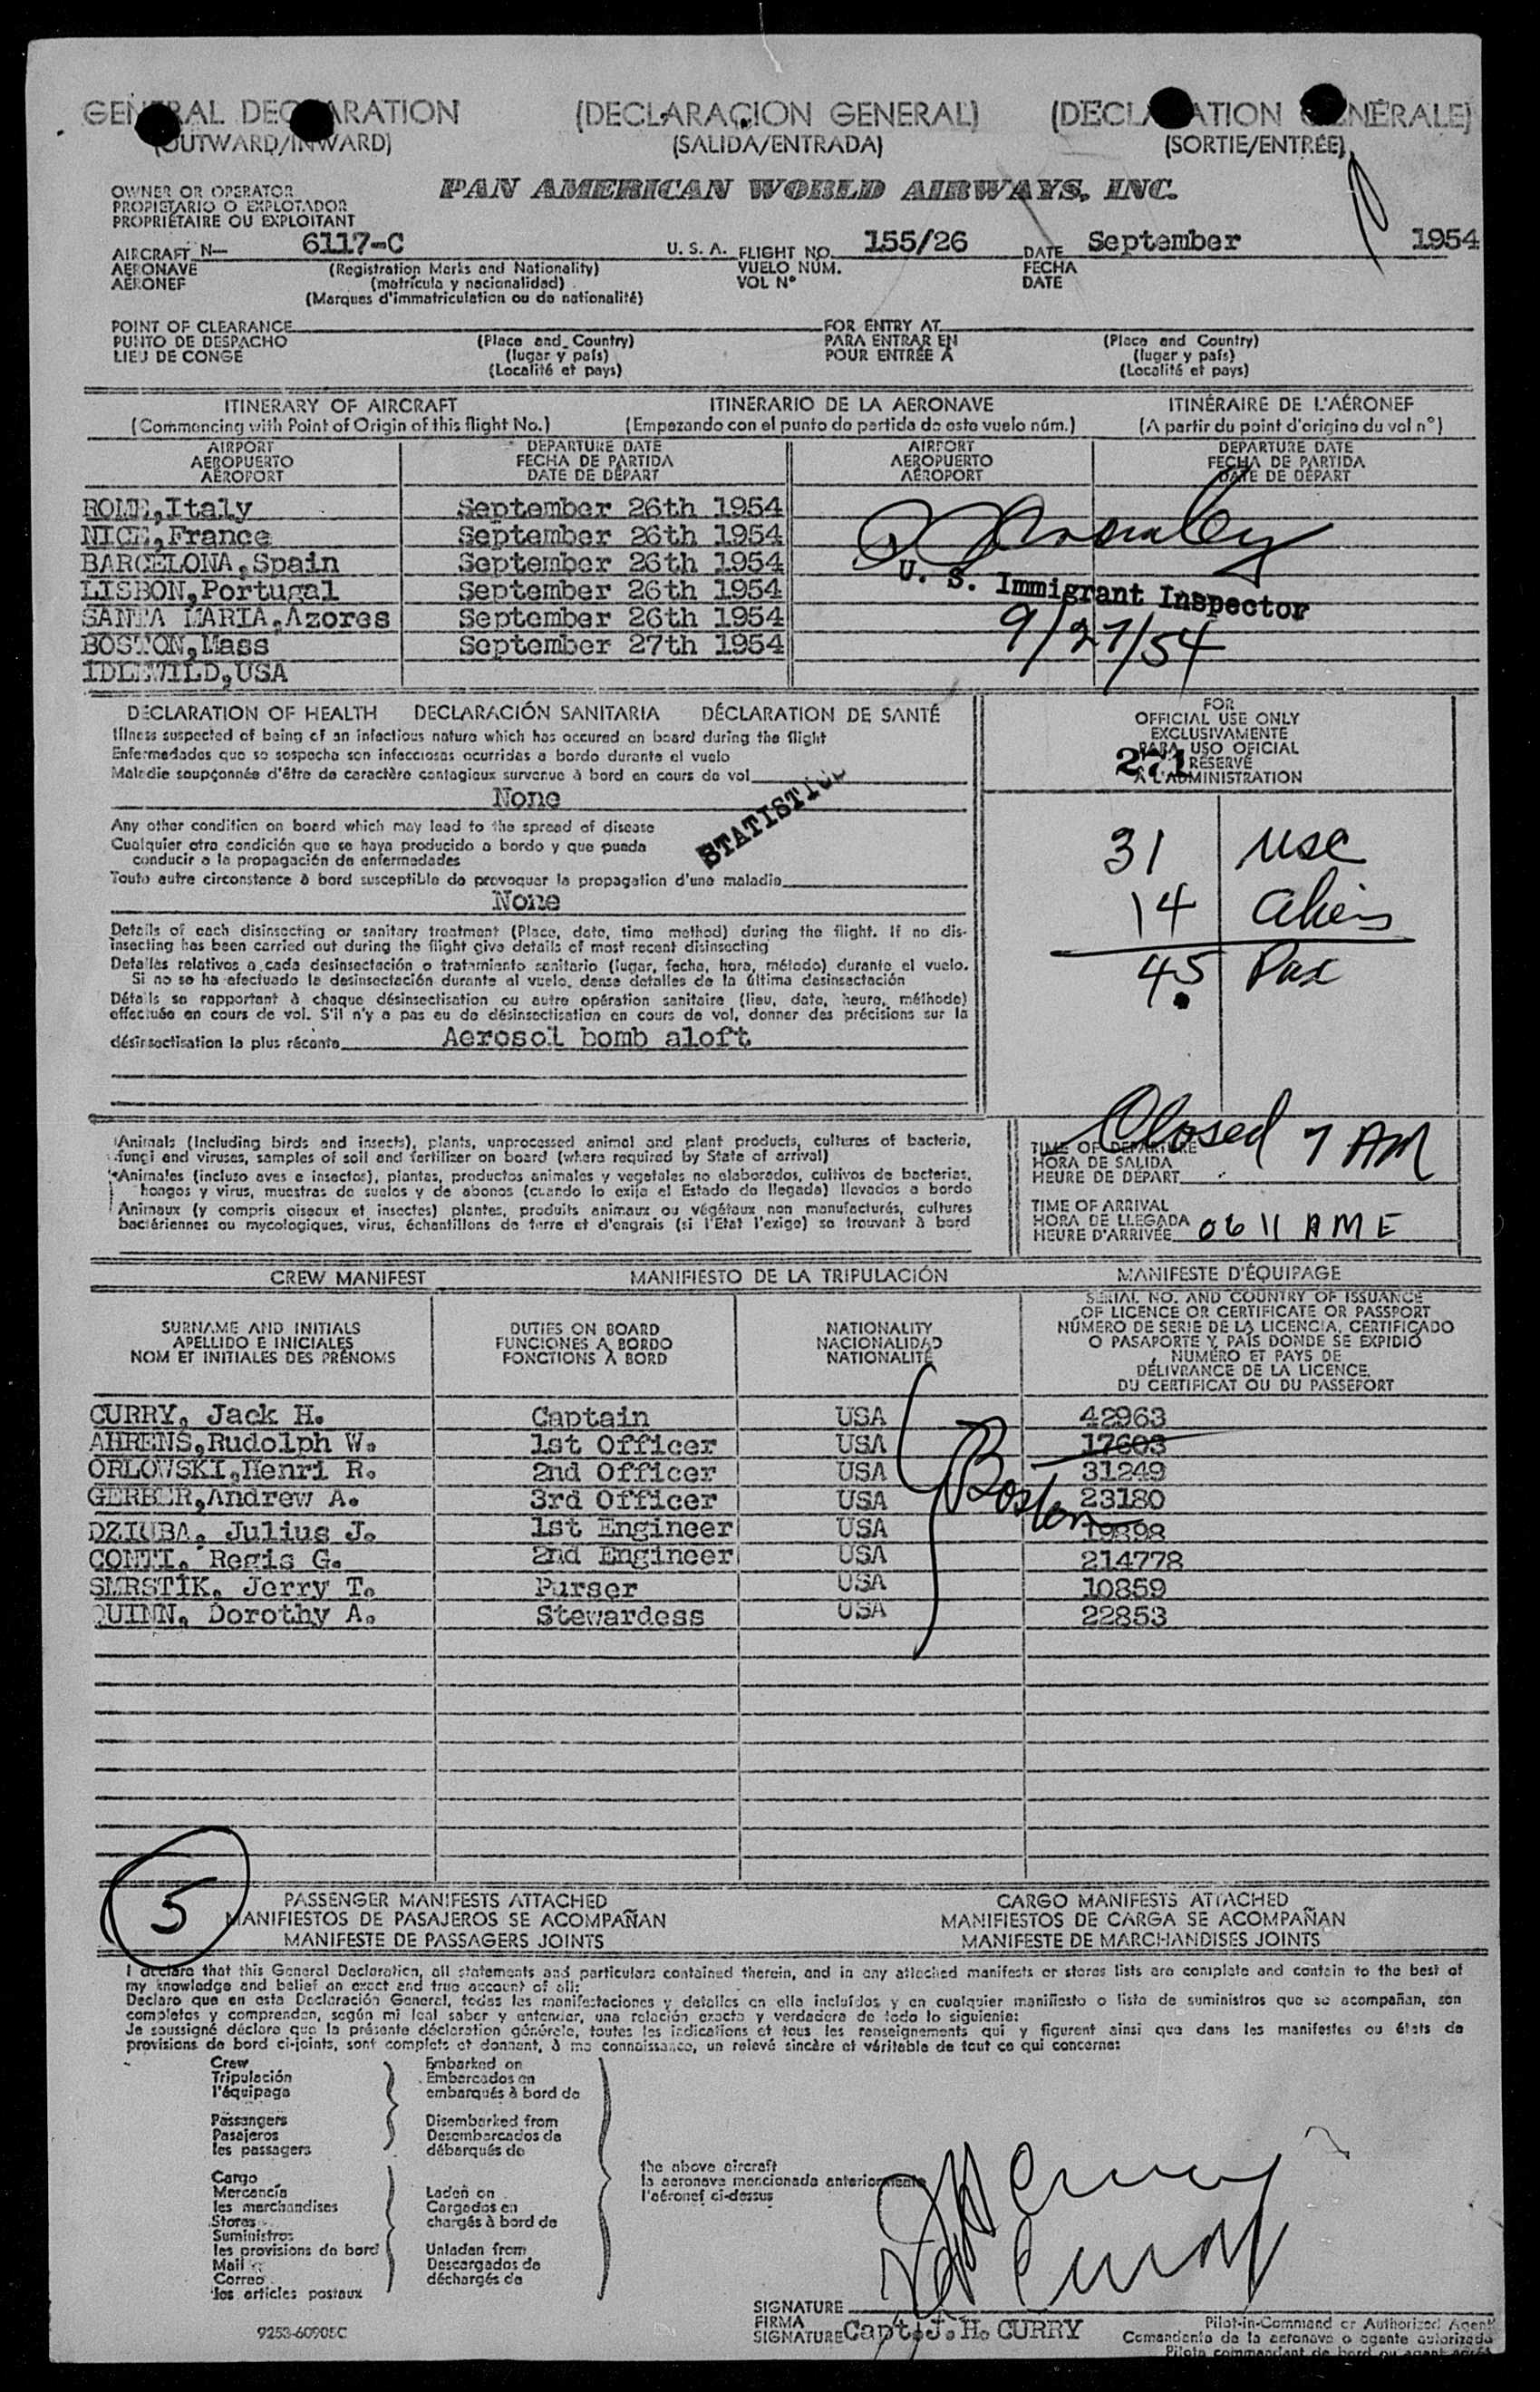 GENERAL DECLARATION (DECLARACION GENERAL) (DECLARATION GÉNÉRALE)
(OUTWARD/INWARD) (SALIDA/ENTRADA) (SORTIE/ENTRÉE)
OWNER OR OPERATOR
PROPIETARIO O EXPLOTADOR
PROPRIÉTAIRE OU EXPLOITANT
PAN AMERICAN WORLD AIRWAYS, INC.
AIRCRAFT N— 6117-C U. S. A. FLIGHT NO. 155/26 DATE September 1954
AERONAVE (Registration Marks and Nationality) VUELO NÚM. FECHA
AÉRONEF (matrícula y nacionalidad) VOL N° DATE
(Marques d'immatriculation ou de nationalité)
POINT OF CLEARANCE FOR ENTRY AT
PUNTO DE DESPACHO (Place and Country) PARA ENTRAR EN (Place and Country)
LIEU DE CONGÉ (lugar y país) POUR ENTRÉE À (lugar y país)
(Localité et pays) (Localité et pays)
ITINERARY OF AIRCRAFT ITINERARIO DE LA AERONAVE ITINÉRAIRE DE L'AÉRONEF
(Commencing with Point of Origin of this flight No.) (Empezando con el punto de partida de este vuelo núm.) (A partir du point d'origine du vol n°)
AIRPORT DEPARTURE DATE AIRPORT DEPARTURE DATE
AEROPUERTO FECHA DE PARTIDA AEROPUERTO FECHA DE PARTIDA
AÉROPORT DATE DE DÉPART AÉROPORT DATE DE DÉPART
ROME,Italy September 26th 1954
NICE,France September 26th 1954
BARCELONA,Spain September 26th 1954
LISBON,Portugal September 26th 1954
U. S. Immigrant Inspector
SANTA MARIA,Azores September 26th 1954
9/27/54
BOSTON,Mass September 27th 1954
IDLEWILD,USA
DECLARATION OF HEALTH DECLARACIÓN SANITARIA DÉCLARATION DE SANTÉ
Illness suspected of being of an infectious nature which has occured on board during the flight
Enfermedades que se sospecha son infecciosas ocurridas a bordo durante el vuelo
Maladie soupçonnée d'être de caractère contagieux survenue à bord en cours de vol
None
Any other condition on board which may lead to the spread of disease
Cualquier otra condición que se haya producido a bordo y que pueda
conducir a la propagación de enfermedades
Toute autre circonstance à bord susceptible de provoquer la propagation d'une maladie
None
Details of each disinsecting or sanitary treatment (Place, date, time method) during the flight. If no dis-
insecting has been carried out during the flight give details of most recent disinsecting
Detalles relativos a cada desinsectación o tratamiento sanitario (lugar, fecha, hora, método) durante el vuelo.
Si no se ha efectuado la desinsectación durante el vuelo, dense detalles de la última desinsectación
Détails se rapportant à chaque désinsectisation ou autre opération sanitaire (lieu, date, heure, méthode)
effectuée en cours de vol. S'il n'y a pas eu de désinsectisation en cours de vol, donner des précisions sur la
désinsectisation la plus récente Aerosol bomb aloft
FOR
OFFICIAL USE ONLY
EXCLUSIVAMENTE
PARA USO OFICIAL
RÉSERVÉ
À L'ADMINISTRATION
271
31 USC
14 Aliens
45 Pax
Animals (Including birds and insects), plants, unprocessed animal and plant products, cultures of bacteria,
fungi and viruses, samples of soil and fertilizer on board (where required by State of arrival)
Animales (incluso aves e insectos), plantas, productos animales y vegetales no elaborados, cultivos de bacterias,
hongos y virus, muestras de suelos y de abonos (cuando lo exija el Estado de llegada) llevados a bordo
Animaux (y compris oiseaux et insectes) plantes, produits animaux ou végétaux non manufacturés, cultures
bactériennes ou mycologiques, virus, échantillons de terre et d'engrais (si l'État l'exige) se trouvant à bord
Closed 7 AM
TIME OF DEPARTURE
HORA DE SALIDA
HEURE DE DÉPART
TIME OF ARRIVAL
HORA DE LLEGADA
HEURE D'ARRIVÉE 0611 AME
CREW MANIFEST MANIFIESTO DE LA TRIPULACIÓN MANIFESTE D'ÉQUIPAGE
SURNAME AND INITIALS
APELLIDO E INICIALES
NOM ET INITIALES DES PRÉNOMS
DUTIES ON BOARD
FUNCIONES A BORDO
FONCTIONS À BORD
NATIONALITY
NACIONALIDAD
NATIONALITÉ
SERIAL NO. AND COUNTRY OF ISSUANCE
OF LICENCE OR CERTIFICATE OR PASSPORT
NÚMERO DE SERIE DE LA LICENCIA, CERTIFICADO
O PASAPORTE Y PAÍS DONDE SE EXPIDIÓ
NUMÉRO ET PAYS DE
DÉLIVRANCE DE LA LICENCE,
DU CERTIFICAT OU DU PASSEPORT
CURRY, Jack H. Captain USA 42963
AHRENS,Rudolph W. 1st Officer USA 17603
ORLOWSKI,Henri R. 2nd Officer USA 31249
GERBER,Andrew A. 3rd Officer USA 23180
Boston
DZIUBA, Julius J. 1st Engineer USA 19898
CONTI, Regis G. 2nd Engineer USA 214778
SMRSTIK, Jerry T. Purser USA 10859
QUINN, Dorothy A. Stewardess USA 22853
5
PASSENGER MANIFESTS ATTACHED CARGO MANIFESTS ATTACHED
MANIFIESTOS DE PASAJEROS SE ACOMPAÑAN MANIFIESTOS DE CARGA SE ACOMPAÑAN
MANIFESTE DE PASSAGERS JOINTS MANIFESTE DE MARCHANDISES JOINTS
I declare that this General Declaration, all statements and particulars contained therein, and in any attached manifests or stores lists are complete and contain to the best of
my knowledge and belief an exact and true account of all:
Declaro que en esta Declaración General, todas las manifestaciones y detalles en ella incluídos y en cualquier manifiesto o lista de suministros que se acompañan, son
completos y comprenden, según mi leal saber y entender, una relación exacta y verdadera de todo lo siguiente:
Je soussigné déclare que la présente déclaration générale, toutes les indications et tous les renseignements qui y figurent ainsi que dans les manifestes ou états de
provisions de bord ci-joints, sont complets et donnent, à ma connaissance, un relevé sincère et véritable de tout ce qui concerne:
Crew Embarked on
Tripulación Embarcados en
l'équipage embarqués à bord de
Passengers Disembarked from
Pasajeros Desembarcados de
les passagers débarqués de
the above aircraft
la aeronave mencionada anteriormente
l'aéronef ci-dessus
Cargo
Mercancía Laden on
les marchandises Cargados en
Stores chargés à bord de
Suministros
les provisions de bord Unladen from
Mail Descargados de
Correo déchargés de
les articles postaux
J H Curry
J H Curry
SIGNATURE
FIRMA
SIGNATURE Capt. J. H. CURRY
Pilot-in-Command or Authorized Agent
Comandante de la aeronave o agente autorizado
Pilote commandant de bord ou agent agréé
9253-60905C